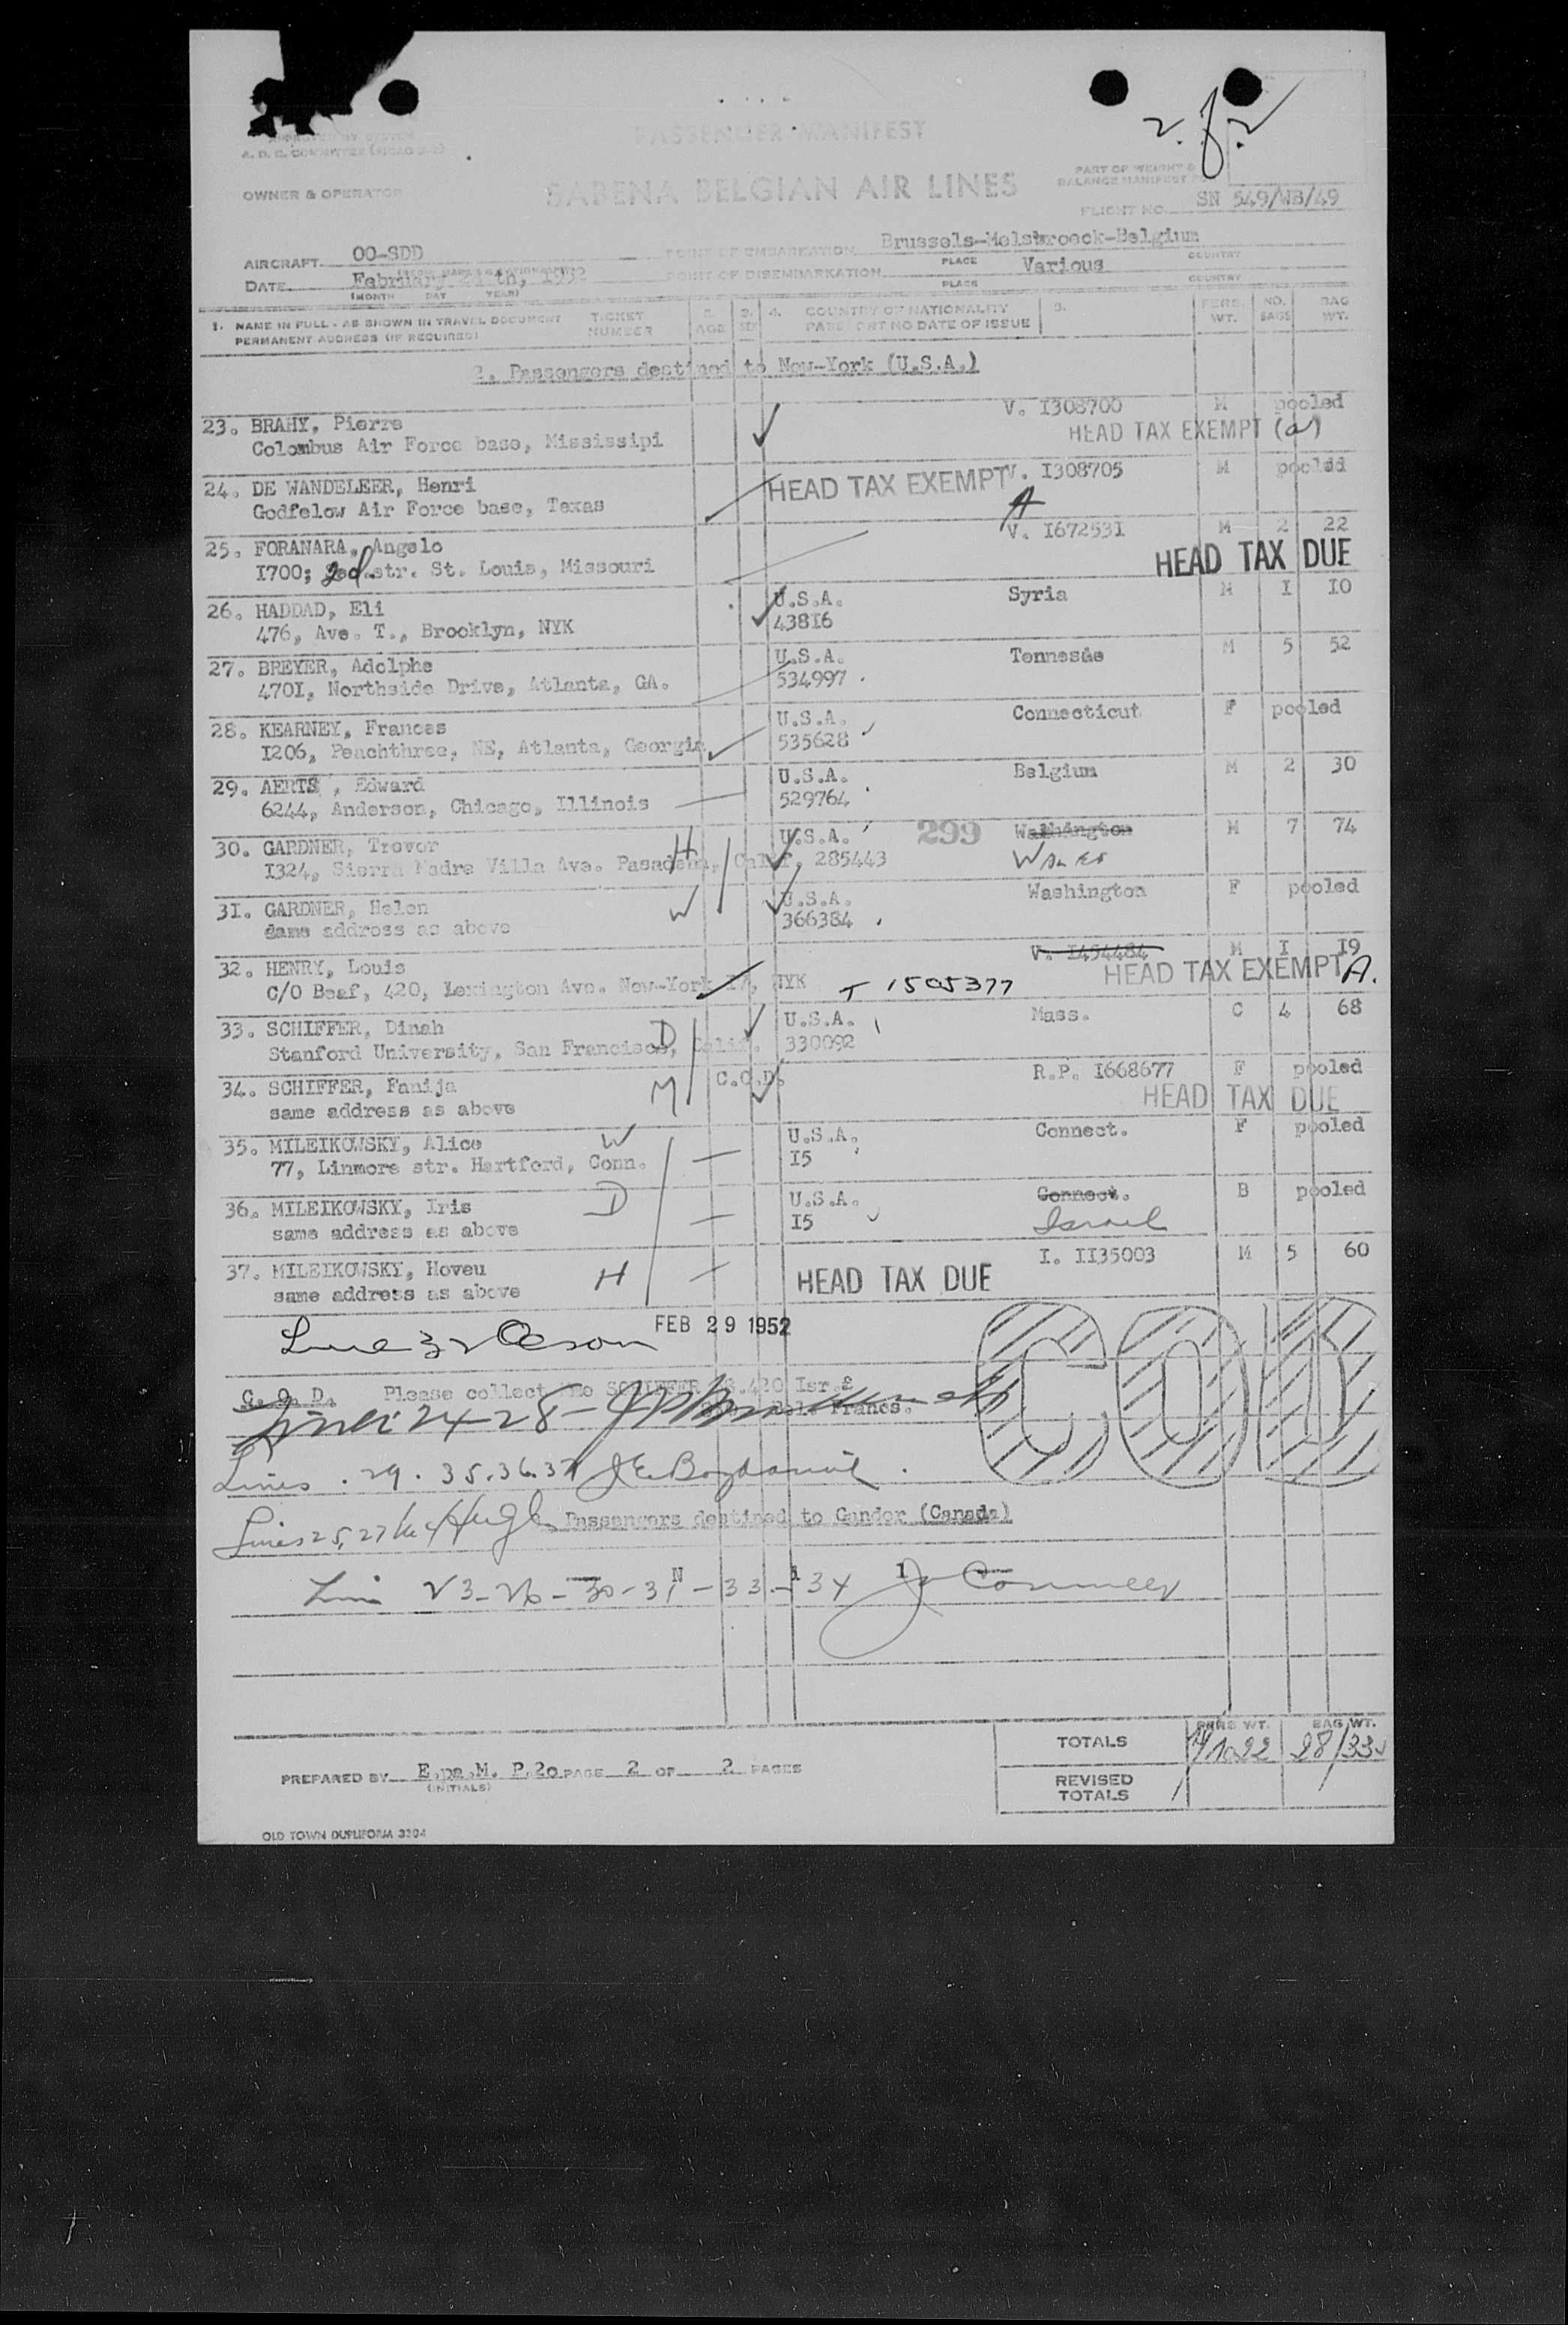 2 of 2
PASSENGER MANIFEST
A. D. C. COMMITTEE
OWNER & OPERATOR
SABENA BELGIAN AIR LINES
PART OF WEIGHT &
BALANCE MANIFEST
FLIGHT NO. SN 549/WB/49
AIRCRAFT OO-SDD
POINT OF EMBARKATION Brussels-Melsbroeck-Belgium
PLACE COUNTRY
DATE February th, 1952
(MONTH DAY YEAR)
POINT OF DISEMBARKATION Various
PLACE COUNTRY
1. NAME IN FULL - AS SHOWN IN TRAVEL DOCUMENT
PERMANENT ADDRESS (IF REQUIRED)
TICKET NUMBER
2. AGE
3. SEX
4. COUNTRY OF NATIONALITY
PASSPORT NO DATE OF ISSUE
5.
PERS. WT.
NO. BAGS
BAG WT.
2. Passengers destined to New-York (U.S.A.)
23. BRAHY, Pierre V. I308700 M pooled
Colombus Air Force base, Mississipi HEAD TAX EXEMPT (a)
24. DE WANDELEER, Henri HEAD TAX EXEMPT A V. I308705 M pooled
Godfelow Air Force base, Texas
25. FORANARA, Angelo V. I672531 M 2 22
I700; 2d. str. St. Louis, Missouri HEAD TAX DUE
26. HADDAD, Eli U.S.A. Syria M I IO
476, Ave. T., Brooklyn, NYK 438I6
27. BREYER, Adolphe U.S.A. Tennesse M 5 52
470I, Northside Drive, Atlanta, GA. 534997
28. KEARNEY, Frances U.S.A. Connecticut F pooled
I206, Peachthree, NE, Atlanta, Georgia 535628
29. AERTS, Edward U.S.A. Belgium M 2 30
6244, Anderson, Chicago, Illinois 529764
30. GARDNER, Trevor H U.S.A. 299 Washington M 7 74
I324, Sierra Madre Villa Ave. Pasadena, Calif. 285443 WALES
31. GARDNER, Helen W U.S.A. Washington F pooled
same address as above 366384
32. HENRY, Louis V. I454484 M I I9
C/O Beaf, 420, Lexington Ave. New-York I7, NYK T 1505377 HEAD TAX EXEMPT A.
33. SCHIFFER, Dinah D U.S.A. Mass. C 4 68
Stanford University, San Francisco, Calif. 330092
34. SCHIFFER, Fanija M C.O.D. R.P. I668677 F pooled
same address as above HEAD TAX DUE
35. MILEIKOWSKY, Alice W U.S.A. Connect. F pooled
77, Linmore str. Hartford, Conn. I5
36. MILEIKOWSKY, Iris D U.S.A. Connect. B pooled
same address as above I5 Israel
37. MILEIKOWSKY, Hoveu H I. II35003 M 5 60
same address as above HEAD TAX DUE
Line 32 Oeson FEB 29 1952
C. O. D. Please collect SCHIFFER .420 Isr.£
Belg. Francs.
COD
Lines 24-28-
Lines . 29 . 35.36.37 J E Bogdanovic .
Lines 25, 27 McHugh Passengers destined to Gander (Canada)
N i l
Line 23-26-30-31-33-34 J Connelly
TOTALS PERS WT. BAG WT.
28/335
REVISED TOTALS
PREPARED BY E.pa.M. P.20 PAGE 2 OF 2 PAGES
(INITIALS)
OLD TOWN DUPLIFORM 3304